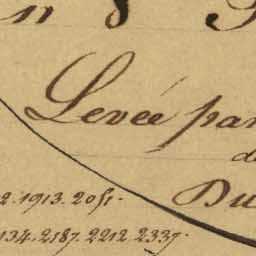 Levée par
Du
2. 1913. 2051.
134. 2187. 2212. 2337.